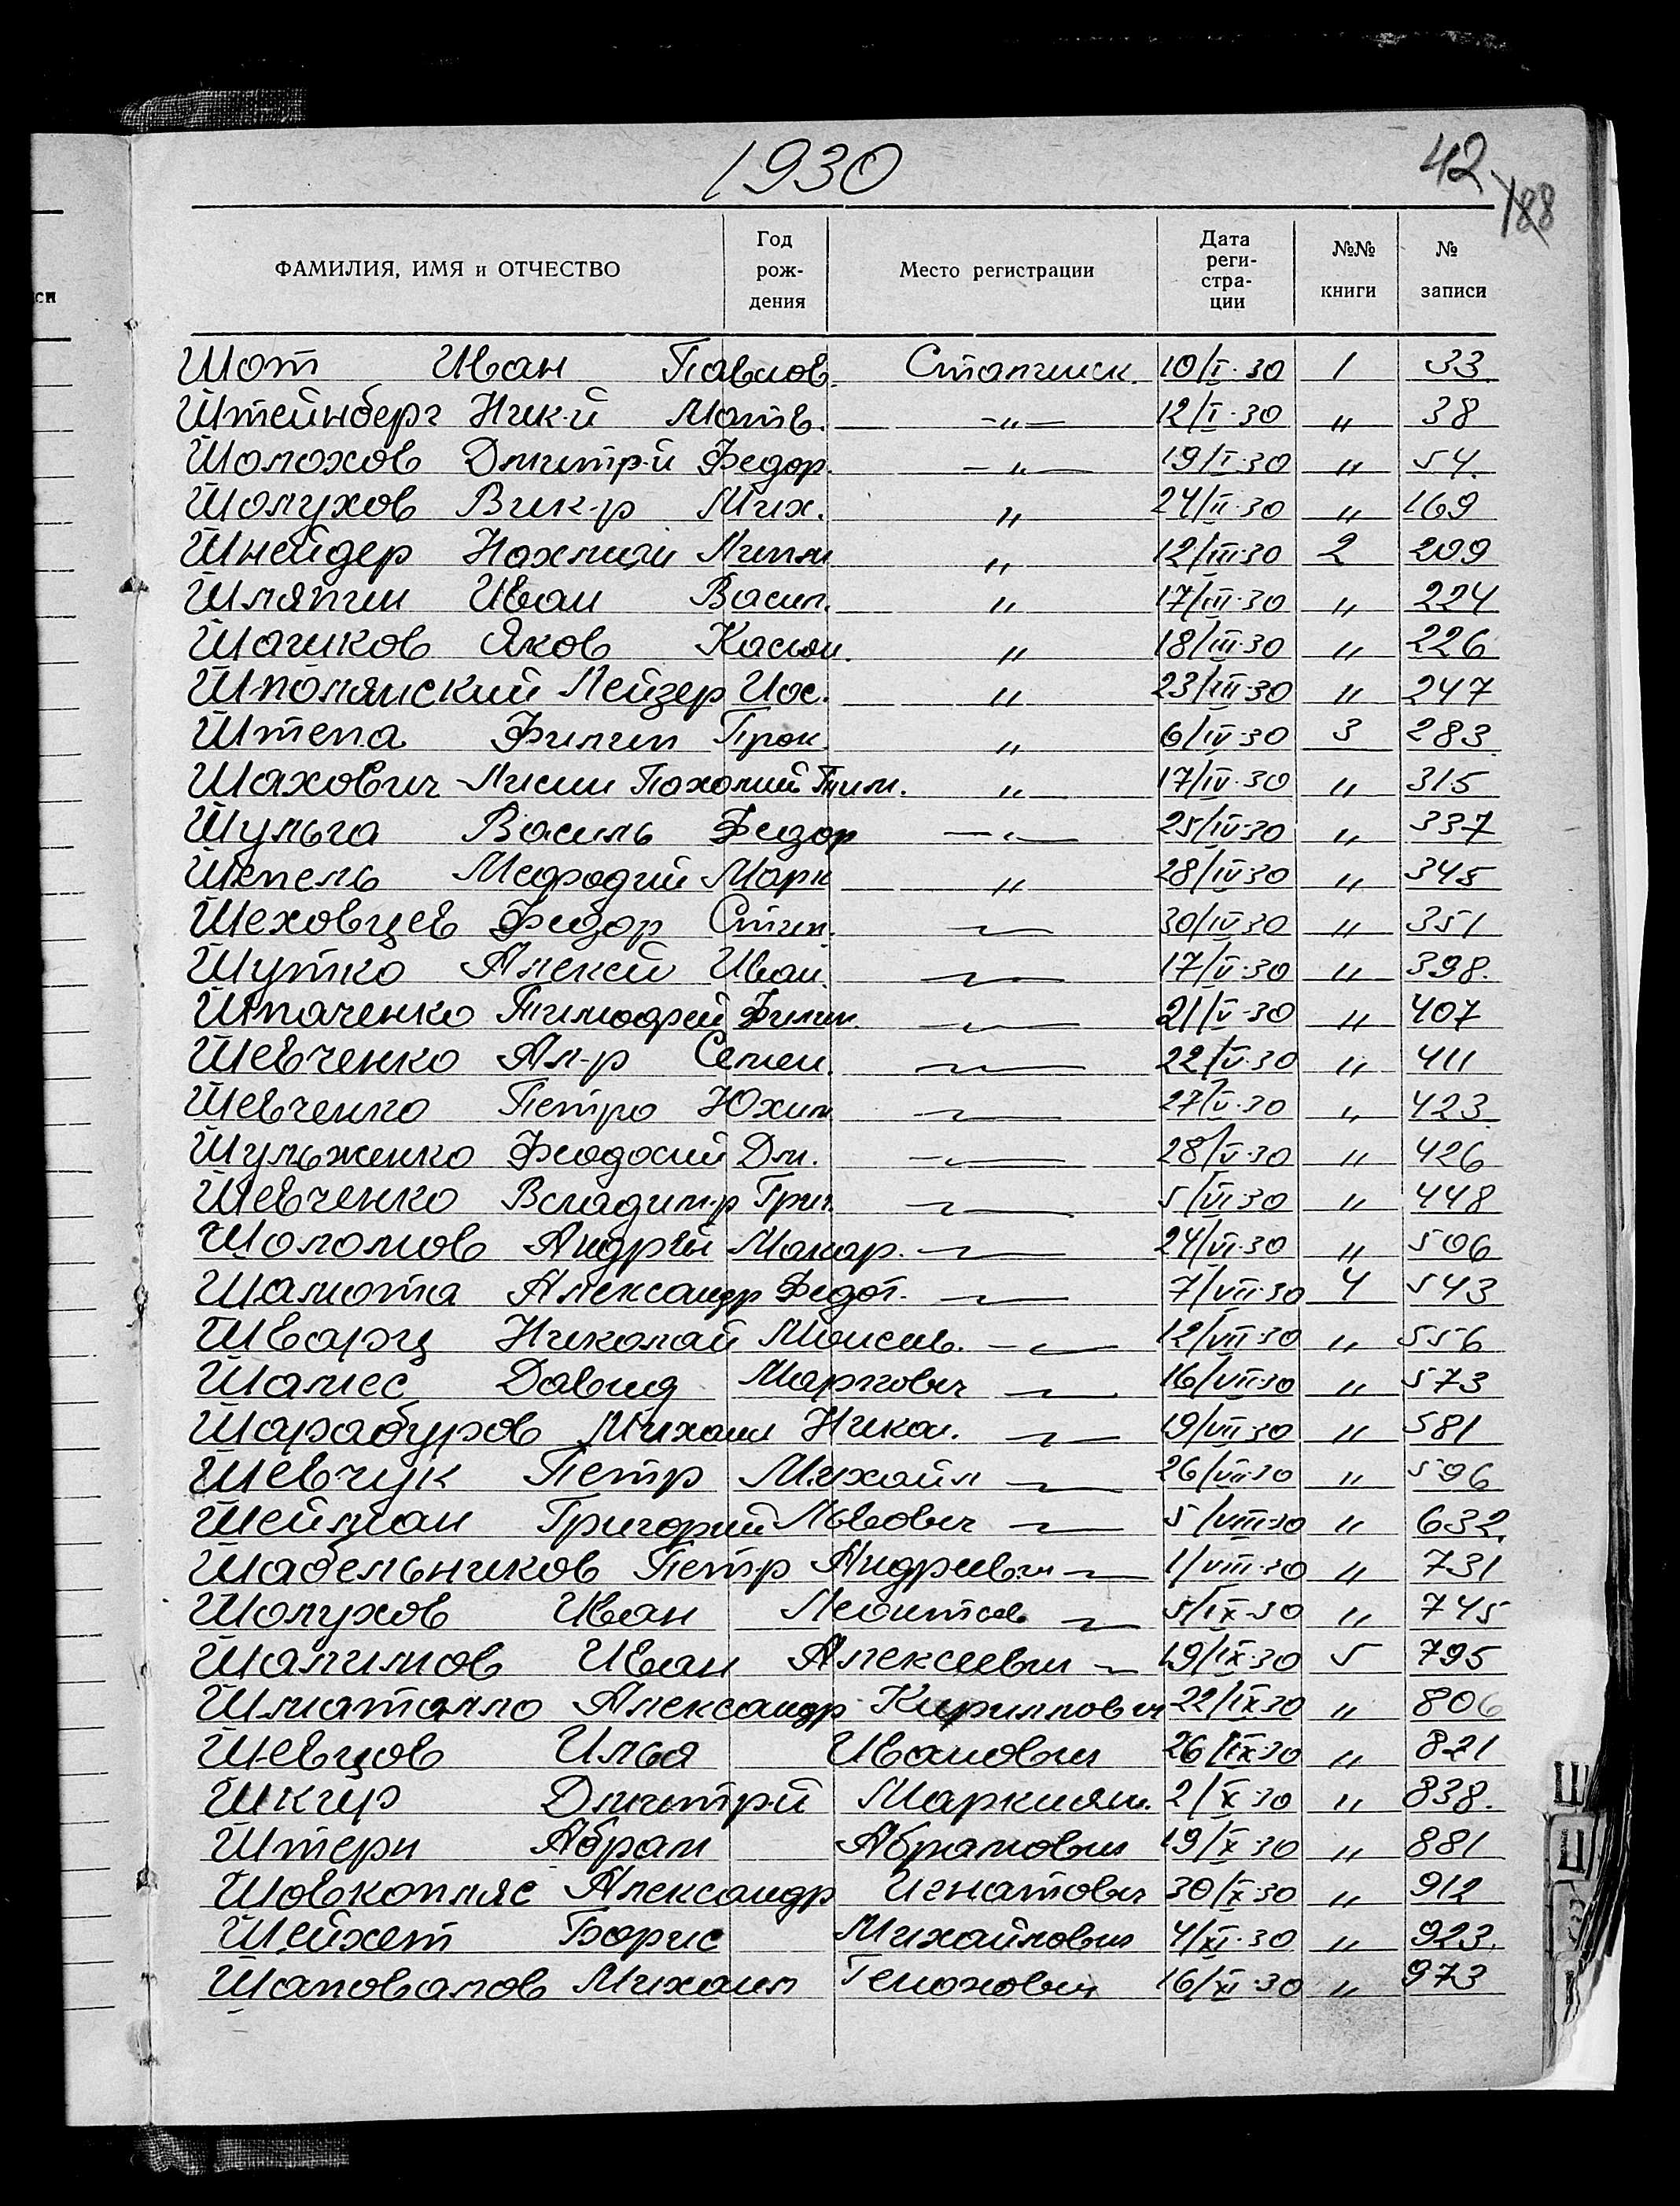 1930
42
188
ФАМИЛИЯ, ИМЯ и ОТЧЕСТВО Год рождения Место регистрации Дата регистрации №№ книги № записи
Шот Иван Павлов. Сталинск. 10/I-30 1 33
Штейнберг Ник-й Матв. -"- 12/I-30 " 38
Шолохов Дмитр-й Федор. -"- 19/I-30 " 54.
Шолухов Вик-р Мих. " 24/II-30 " 169
Шнейдер " 12/III-30 2 209
Шляпин Иван Васил. " 17/III-30 " 224
Шагиков Яков Касьян. " 18/III-30 " 226
Шполянский Лейзер Иос. " 23/III-30 " 247
Штепа Филип Прок. " 6/IV-30 3 283
Шахович Пахомий Тим. " 17/IV-30 " 315
Шульга Василь Федор -"- 25/IV-30 " 337
Шепель Мефодий Марк " 28/IV-30 " 345
Шеховцев Федор Степ. -"- 30/IV-30 " 351
Шутко Алексей Иван. -"- 17/V-30 " 398.
Шпаченко Тимофей Филип. -"- 21/V-30 " 407
Шевченко Ал-р Семен. -"- 22/V-30 " 411
Шевченко Петро Юхим -"- 27/V-30 " 423
Шульженко Феодосий Дм. -"- 28/V-30 " 426
Шевченко Владим-р Григ. -"- 5/VI-30 " 448
Шоломов Андрей Макар. -"- 24/VI-30 " 506
Шамота Александр Федот. -"- 7/VII-30 4 543
Шварц Николай Моисеев. -"- 12/VII-30 " 556
Шамес Давид Маркович -"- 16/VII-30 " 573
Шарабуров Михаил Никол. -"- 19/VII-30 " 581
Шевчук Петр Михайл -"- 26/VII-30 " 596
Шейман Григорий Львович -"- 5/VIII-30 " 632.
Шабельников Петр Андреевич -"- 1/VIII-30 " 731
Шолухов Иван Леонтьев -"- 5/IX-30 " 745
Шалимов Иван Алексеевич -"- 19/IX-30 5 795
Шматалло Александр Кириллович 22/IX-30 " 806
Шевцов Илья Иванович 26/IX-30 " 821
Шкир Дмитрий Маркиян. 2/X-30 " 838.
Штерн Абрам Абрамович 19/X-30 " 881
Шовкопляс Александр Игнатович 30/X-30 " 912
Шейхет Борис Михайлович 4/XI-30 " 923.
Шаповалов Михаил 16/XI-30 " 973